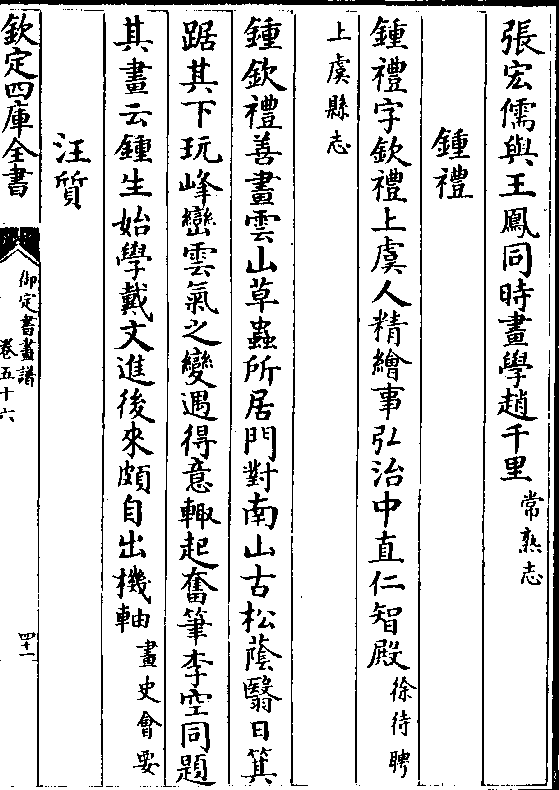 張宏儒與王鳳同時畫學趙千里常熟志
鍾禮
鍾禮字欽禮上虞人精繪事弘治中直仁智殿徐待聘
上虞縣志
鍾欽禮善畫雲山草蟲所居門對南山古松蔭翳日箕
踞其下玩峰巒雲氣之變遇得意輙起奮筆李空同題
其畫云鍾生始學戴文進後來頗自出機軸畫史會要
汪質
欽定四庫全書
御定書畫譜
卷五十六
四十一